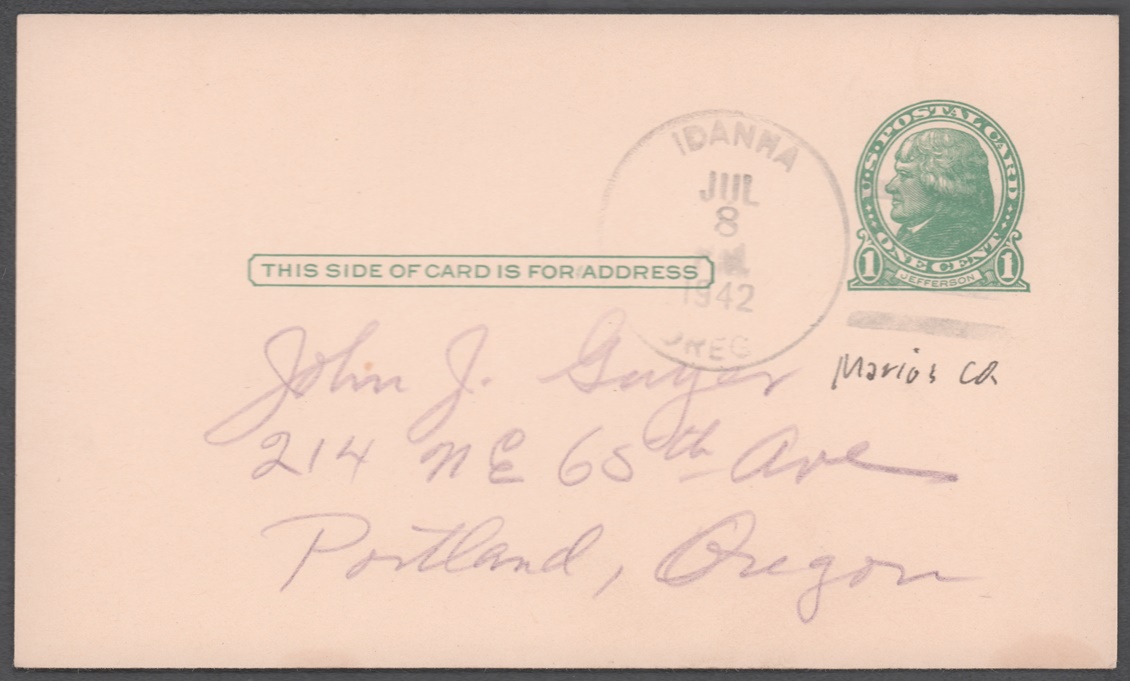 U.S. POSTAL CARD
ONE CENT
1 JEFFERSON 1
IDANHA
JUL
8
1942
OREG
THIS SIDE OF CARD IS FOR ADDRESS
John J.
214 NE 65th Ave
Portland, Oregon